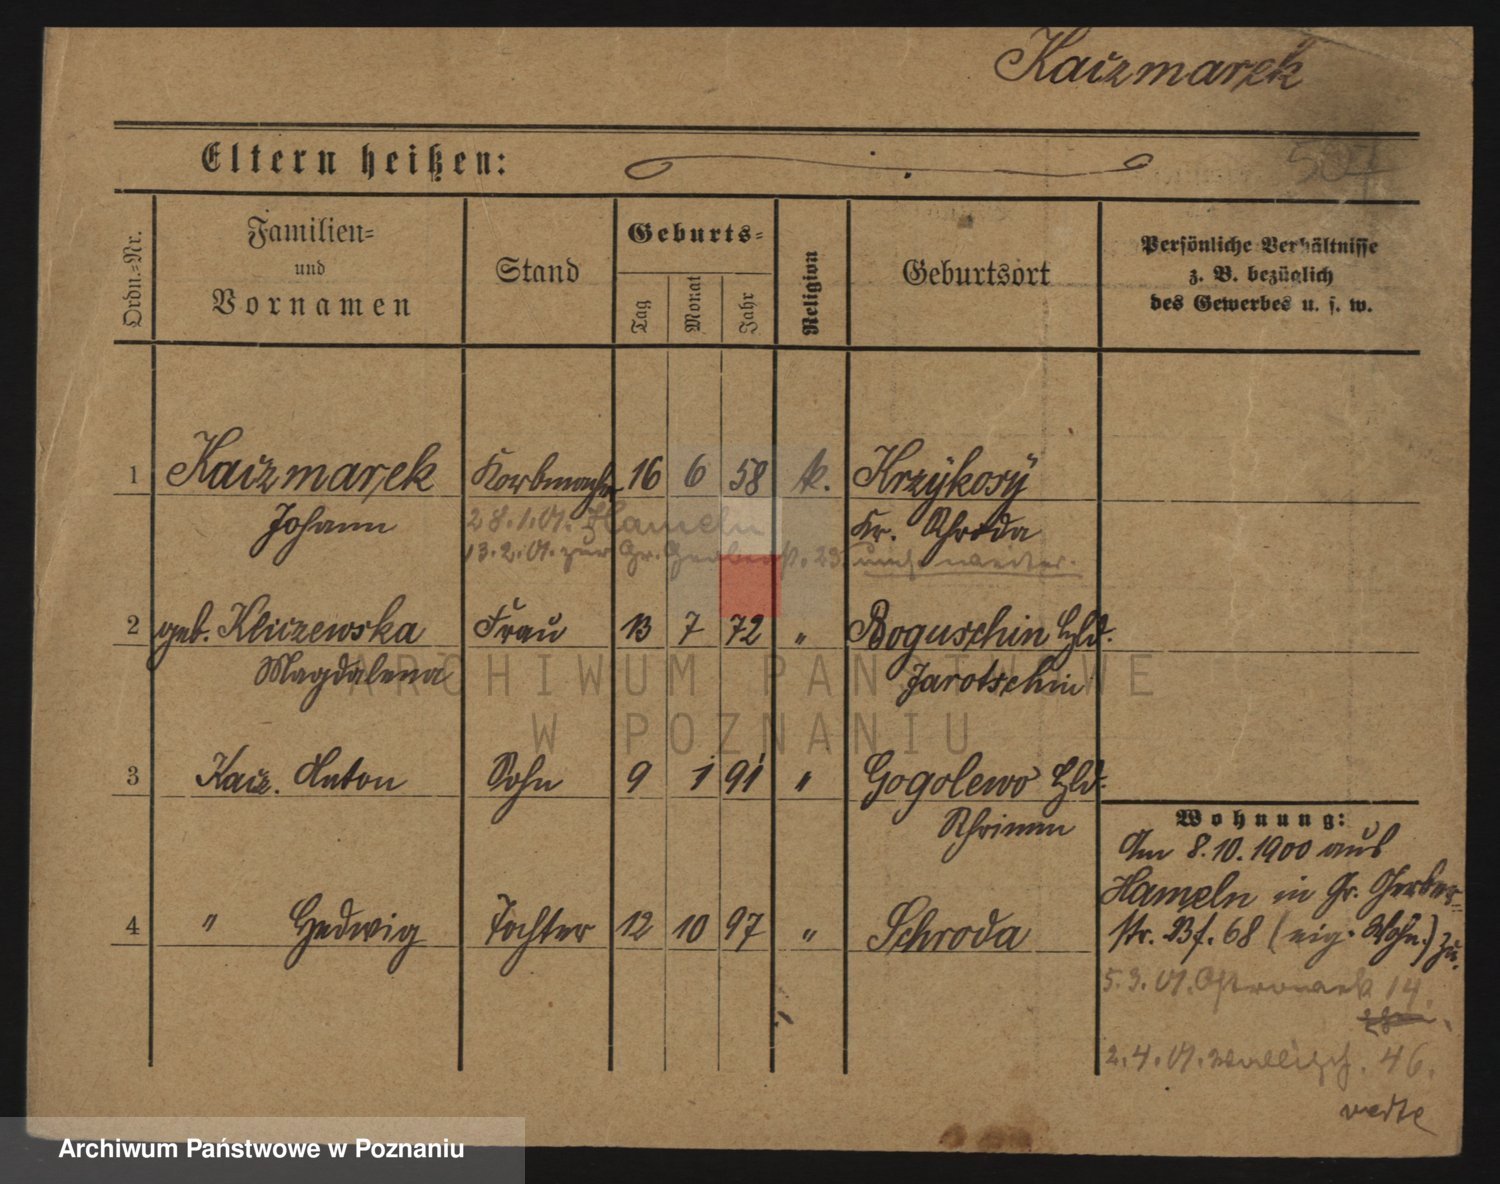 Kaczmarek
Eltern heißen:
507
Ordn.-Nr.
Familien-
und
Vornamen
Stand
Geburts-
Tag
Monat
Jahr
Religion
Geburtsort
Persönliche Verhältnisse
z. B. bezüglich
des Gewerbes u. s. w.
1 Kaczmarek Korbmacher 16 6 58 k. Krzykosy
Johann Kr. Schroda
28.1.01. Hameln
13.2.01. zur Gr. Gerberstr. 23 weiter.
2 geb. Kliczewska Frau 13 7 72 " Boguschin Hld.
Magdalena Jarotschin
3 Kacz. Anton Sohn 9 1 91 " Gogolewo Hld.
Schrimm
4 " Hedwig Tochter 12 10 97 " Schroda
Wohnung:
Am 8.10.1900 aus
Hameln in Gr. Gerber-
str. 23 f. 68 (eig. Wohn.) zu.
5.3.01. Ostrowek 14.
2.4.01. Wallisch. 46.
ARCHIWUM PAŃSTWOWE
W POZNANIU
Archiwum Państwowe w Poznaniu